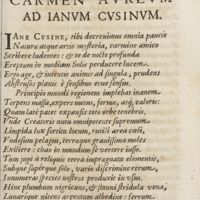 CARMEN AVREVM
AD IANVM CVSINVM.
IANE CVSINE, tibi decreuimus omnia paucis
Naturæ atque artis mysteria, carmine amico
Scribere ludentes: & re de nocte profunda
Ereptum in medium Solis perducere lucem.
Ergo age, & intentis animis ad singula, prudens
Abstrusos planis è sensibus erue sensus.
Principio mundi regionem implebat inanem
Torpens massa, expers motus, forma, atque caloris:
Quam latè patet expansis toto orbe tenebris.
Vnde Creatoris nutu omnipotente supremum
Limpida lux sortita locum, rutili area cœli,
Vndosum pelagus, terraque grauissima moles
Exiliere: chao in mundum se vertere iusso.
Tum iupè à reliquis terra impregnata elementis,
Subque supraque solo, vario discrimine rerum,
Innumeras species nostros produxit in vsus.
Hinc plumbum nigricans, & stanni stridula vena,
Lunarique nitens argentum albedine: ferrum